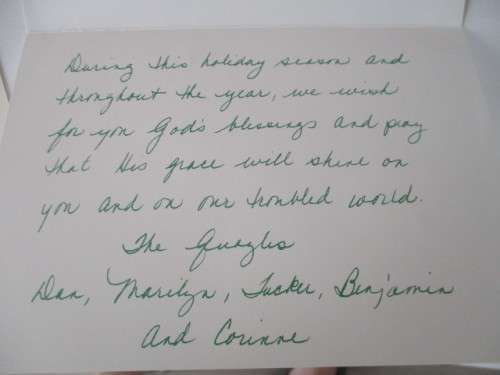 During this holiday season and
throughout the year, we wish
for you God's blessings and pray
that His grace will shine on
you and on our troubled world.
The Quayles
Dan, Marilyn, Tucker, Benjamin
and Corinne